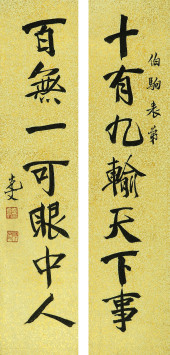 伯駒表弟
十有九輸天下事
百無一可眼中人
克文